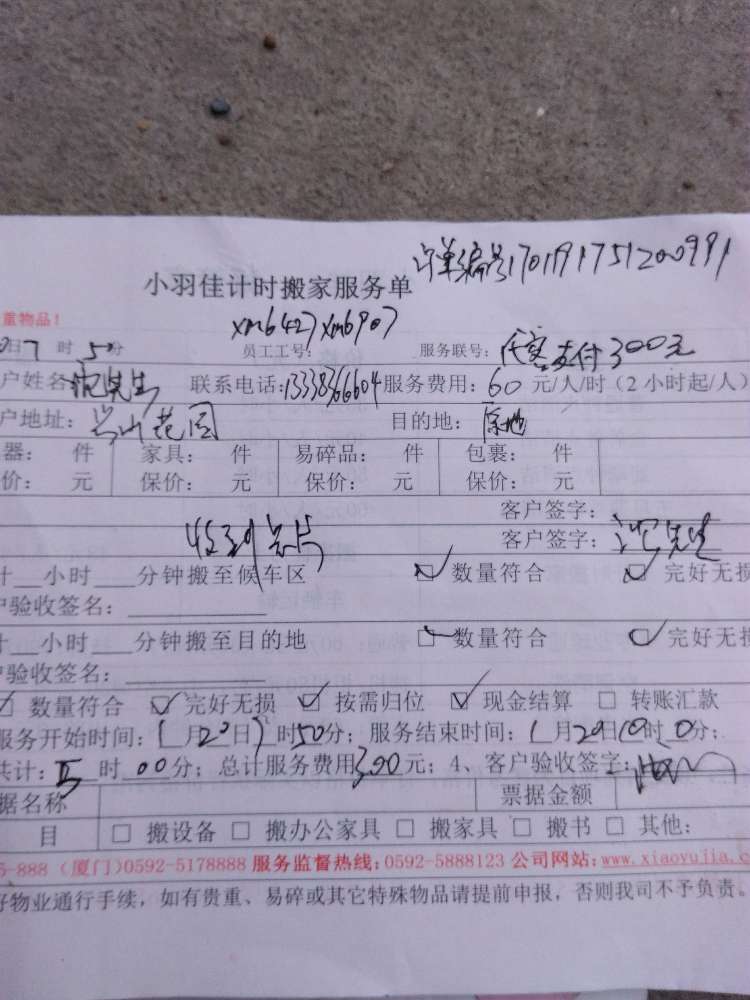 订单编号170191751200991
小羽佳计时搬家服务单
重物品！
xm6427 xm6907
日7时50分 员工工号： 服务联号：
支付300元
户姓名 沈先生 联系电话： 服务费用：60元/人/时（2小时起/人）
户地址： 花园 目的地：原地
器： 件 家具： 件 易碎品： 件 包裹： 件
价： 元 保价： 元 保价： 元 保价： 元
客户签字：
收到 客户签字：沈先生
计___小时___分钟搬至候车区 ☑数量符合 ☑完好无损
户验收签名：
计___小时___分钟搬至目的地 ☑数量符合 ☑完好无损
户验收签名：
☑数量符合 ☑完好无损 ☑按需归位 ☑现金结算 □转账汇款
服务开始时间：1月20日7时50分；服务结束时间：1月20日10时0分；
共计： 时00分；总计服务费用300元；4、客户验收签字：
据名称 票据金额
目 □搬设备 □搬办公家具 □搬家具 □搬书 □其他：
5-888（厦门）0592-5178888 服务监督热线：0592-5888123 公司网站：www.xiaoyujia.c
好物业通行手续，如有贵重、易碎或其它特殊物品请提前申报，否则我司不予负责。